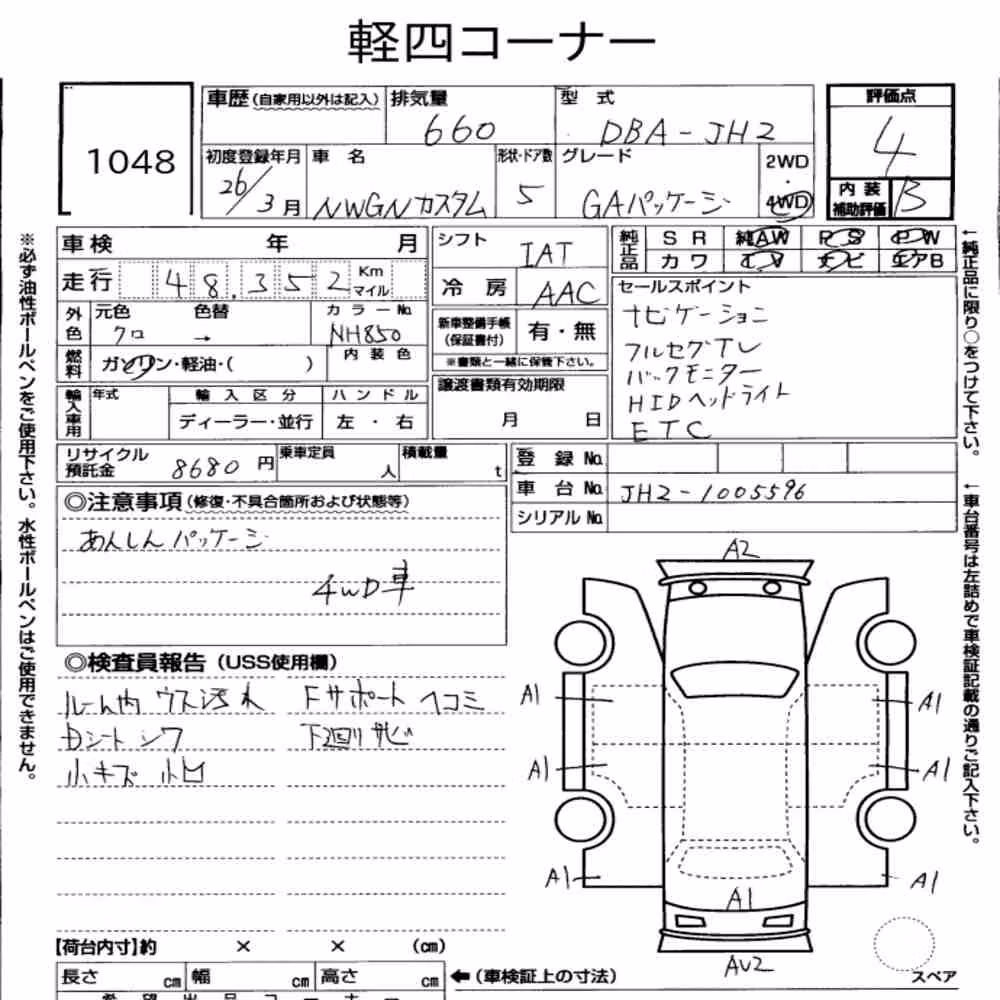 軽四コーナー
1048
車歴(自家用以外は記入) 排気量 型式 評価点
660 DBA-JH2 4
初度登録年月 車名 形状・ドア数 グレード 2WD・4WD
26/3月 NWGNカスタム 5 GAパッケージ
内装補助評価 B
車検 年 月 シフト IAT 純正品 SR 純AW PS PW
カワ TV ナビ エアB
走行 48.352 Km マイル 冷房 AAC
セールスポイント
外色 元色 色替 カラーNo.
クロ → NH850
内装色
新車整備手帳(保証書付) 有・無
※書類と一緒に保管下さい。
燃料 ガソリン・軽油・( )
ナビゲーション
フルセグTV
バックモニター
HIDヘッドライト
ETC
輸入車用 年式 輸入区分 ハンドル
ディーラー・並行 左・右
譲渡書類有効期限
月 日
リサイクル預託金 8680円 乗車定員 人 積載量 t
登録No.
車台No. JH2-1005596
シリアルNo.
◎注意事項(修復・不具合箇所および状態等)
あんしんパッケージ
4WD車
◎検査員報告(USS使用欄)
ルーム内 ウス汚れ Fサポート ヘコミ
Dシート シワ 下廻りサビ
小キズ 小凹
A2
A1 A1
A1 A1
A1 A1 A1
AU2
スペア
【荷台内寸】約 × × (cm)
長さ cm 幅 cm 高さ cm ←(車検証上の寸法)
希望出品コーナー
※必ず油性ボールペンをご使用下さい。水性ボールペンはご使用できません。
←純正品に限り○をつけて下さい。
←車台番号は左詰めで車検証記載の通りご記入下さい。